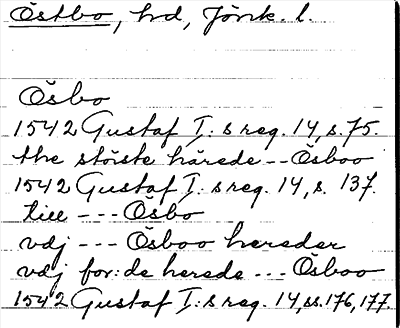 Östbo, hd, Jönk. l.
Ösbo
1542 Gustaf I:s reg. 14, s. 75.
the störste härede -- Ösboo
1542 Gustaf I:s reg. 14, s. 137.
till --- Ösbo
vdj --- Ösboo hereder
vdj for:de herede --- Ösboo
1542 Gustaf I:s reg. 14, ss. 176, 177.